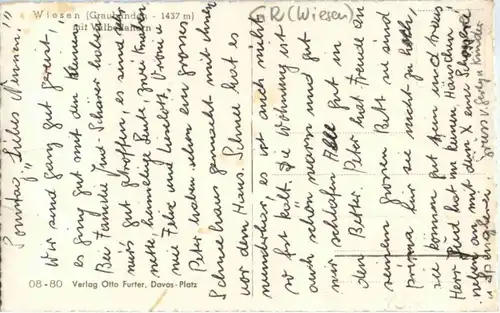 Wiesen (Graubünden - 1437 m)
mit Valbellahorn
GR (Wiesen)
Sonntag, Liebes Nänneli
Wir sind ganz gut gereist,
es ging gut mit den
Bei Familie haben
wir's gut getroffen, es sind
nette heimelige Leute, zwei
mit Felix und Lieselotte u
Peter haben ein grosses
Schneehaus gemacht mit ihnen
vor dem Haus. Schnee hat es
wunderbar, es ist auch nicht
so fest kalt. Die Wohnung ist
auch schön warm und gut
wir schlafen Alle gut in
den Betten. Peter hat Freude an
seinem grossen Bett sie sind
prima für sie nicht zu hoch,
sie können gut und raus
Herr hat im kleinen Häuschen
neben an mit dem X einer
08-80 Verlag Otto Furter, Davos-Platz